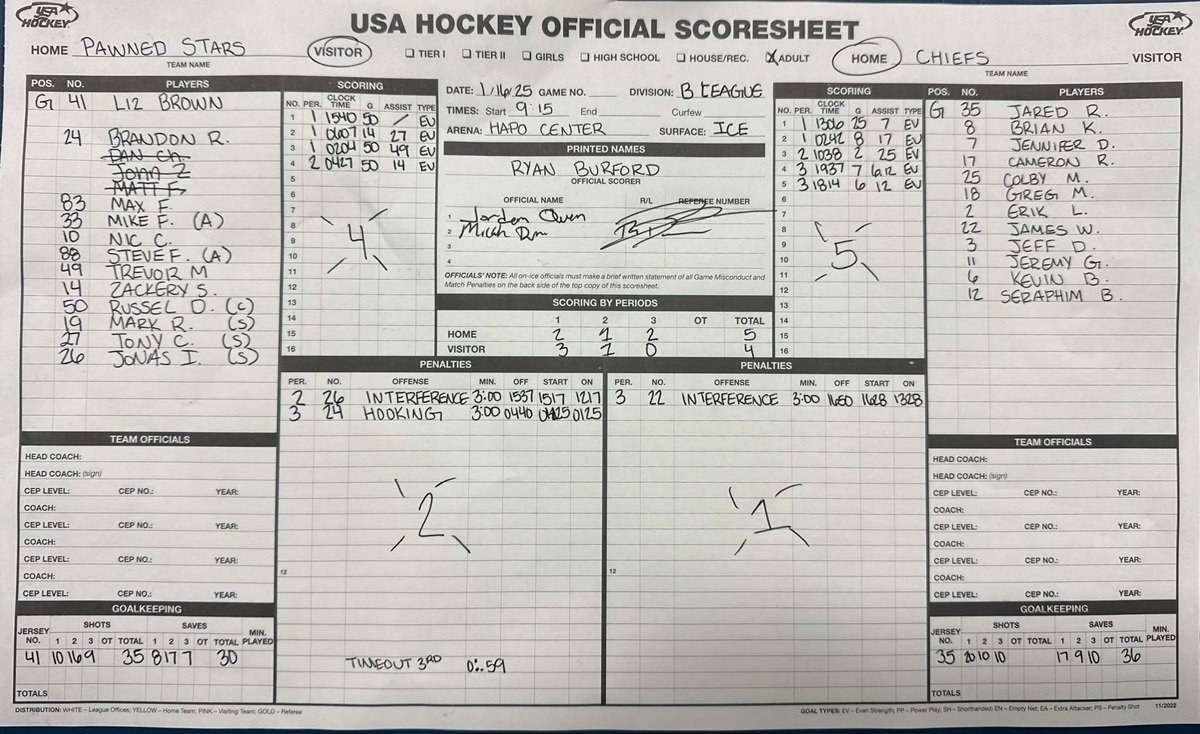 USA HOCKEY
USA HOCKEY OFFICIAL SCORESHEET
USA HOCKEY
HOME PAWNED STARS VISITOR
TEAM NAME
☐ TIER I ☐ TIER II ☐ GIRLS ☐ HIGH SCHOOL ☐ HOUSE/REC. ☒ ADULT
HOME CHIEFS VISITOR
TEAM NAME
POS. NO. PLAYERS
G 41 LIZ BROWN
24 BRANDON R.
DAN Ch.
John Z
MATT F.
83 MAX F.
33 MIKE F. (A)
10 NIC C.
88 STEVE F. (A)
49 TREVOR M
14 ZACKERY S.
50 RUSSEL D. (C)
19 MARK R. (S)
27 TONY C. (S)
26 JONAS I. (S)
SCORING
NO. PER. CLOCK TIME G ASSIST TYPE
1 1 1540 50 / EV
2 1 0607 14 27 EV
3 1 0204 50 49 EV
4 2 0427 50 14 EV
5
6
7
8
9
10
11
12
13
14
15
16
4
DATE: 1/16/25 GAME NO. DIVISION: B LEAGUE
TIMES: Start 9:15 End Curfew
ARENA: HAPO CENTER SURFACE: ICE
PRINTED NAMES
RYAN BURFORD
OFFICIAL SCORER
OFFICIAL NAME R/L REFEREE NUMBER
1 Jorden Owen
2 Micah
3
4
OFFICIALS' NOTE: All on-ice officials must make a brief written statement of all Game Misconduct and
Match Penalties on the back side of the top copy of this scoresheet.
SCORING BY PERIODS
1 2 3 OT TOTAL
HOME 2 1 2 5
VISITOR 3 1 0 4
SCORING
NO. PER. CLOCK TIME G ASSIST TYPE
1 1 1306 25 7 EV
2 1 0242 8 17 EV
3 2 1038 2 25 EV
4 3 1937 7 6,12 EV
5 3 1814 6 12 EV
6
7
8
9
10
11
12
13
14
15
16
5
POS. NO. PLAYERS
G 35 JARED R.
8 BRIAN K.
7 JENNIFER D.
17 CAMERON R.
25 COLBY M.
18 GREG M.
2 ERIK L.
22 JAMES W.
3 JEFF D.
11 JEREMY G.
6 KEVIN B.
12 SERAPHIM B.
PENALTIES
PER. NO. OFFENSE MIN. OFF START ON
2 26 INTERFERENCE 3:00 1537 1517 1217
3 24 HOOKING 3:00 0440 0425 0125
2
12
TIMEOUT 3RD 0:59
PENALTIES
PER. NO. OFFENSE MIN. OFF START ON
3 22 INTERFERENCE 3:00 1650 1628 1328
1
12
TEAM OFFICIALS
HEAD COACH:
HEAD COACH: (sign)
CEP LEVEL: CEP NO.: YEAR:
COACH:
CEP LEVEL: CEP NO.: YEAR:
COACH:
CEP LEVEL: CEP NO.: YEAR:
COACH:
CEP LEVEL: CEP NO.: YEAR:
GOALKEEPING
JERSEY NO. SHOTS SAVES MIN. PLAYED
1 2 3 OT TOTAL 1 2 3 OT TOTAL
41 10 16 9 35 8 17 7 30
TOTALS
TEAM OFFICIALS
HEAD COACH:
HEAD COACH: (sign)
CEP LEVEL: CEP NO.: YEAR:
COACH:
CEP LEVEL: CEP NO.: YEAR:
COACH:
CEP LEVEL: CEP NO.: YEAR:
COACH:
CEP LEVEL: CEP NO.: YEAR:
GOALKEEPING
JERSEY NO. SHOTS SAVES MIN. PLAYED
1 2 3 OT TOTAL 1 2 3 OT TOTAL
35 20 10 10 17 9 10 36
TOTALS
DISTRIBUTION: WHITE – League Offices; YELLOW – Home Team; PINK – Visiting Team; GOLD – Referee
GOAL TYPES: EV – Even Strength; PP – Power Play; SH – Shorthanded; EN – Empty Net; EA – Extra Attacker; PS – Penalty Shot 11/2022